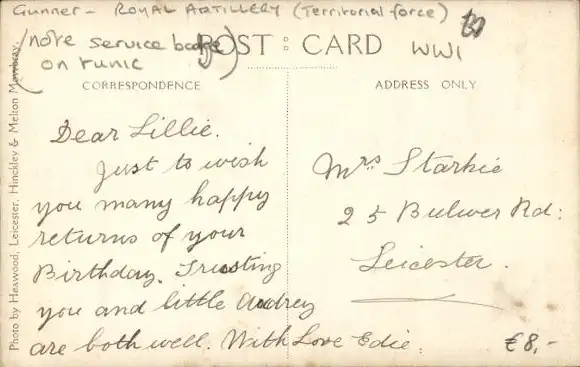 Gunner - ROYAL ARTILLERY (Territorial force)
(note service badge on tunic)
WW1
POST CARD
CORRESPONDENCE
ADDRESS ONLY
Photo by Heawood, Leicester, Hinckley & Melton Mowbray.
Dear Lillie.
Just to wish
you many happy
returns of your
Birthday. Trusting
you and little Audrey
are both well. With Love Edie.
Mrs Starkie
25 Bulwer Rd:
Leicester.
€8,-